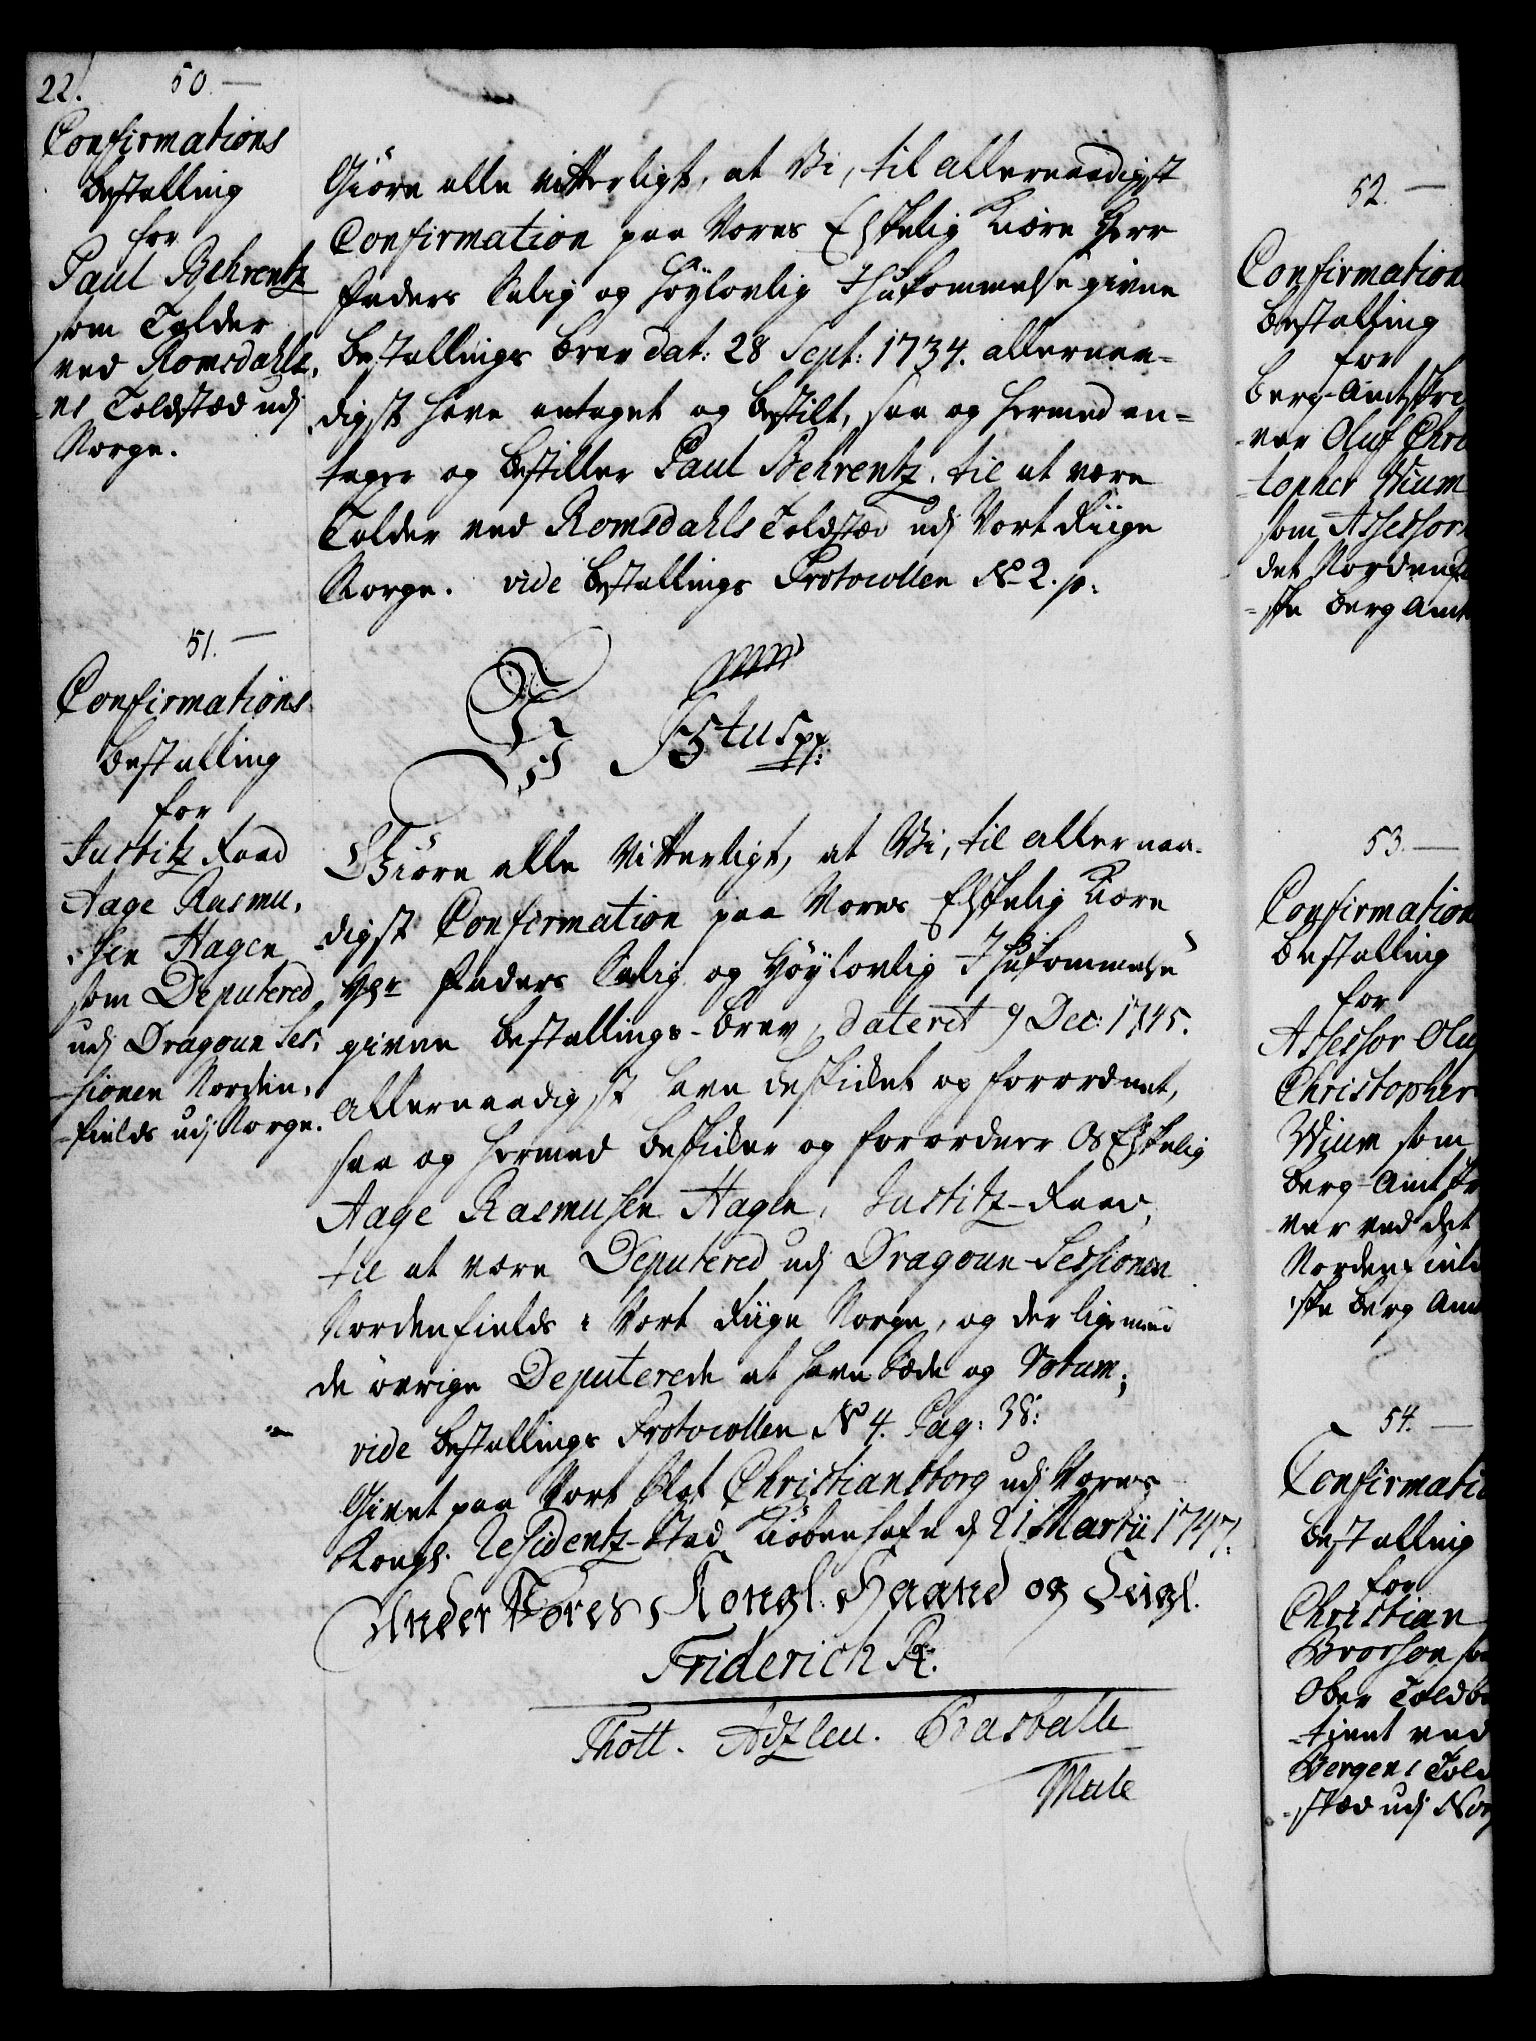 22.
50.
Confirmations
Bestalling
for
Paul Behrentz
som Tolder
ved Romsdahle,
-ns Toldsted udj
Norge.
Giöre alle vitterligt, at Vi, til allernaadigst
Confirmation paa Vores Elskelig Kiære Herr
Faders Salig og Höylovlig Ihukommelse givne
Bestallings Brev dat: 28 Sept: 1734. allernaa-
digst have antaget og bestilt, saa og hermed an-
tager og bestiller Paul Behrentz, til at være
Tolder ved Romsdahls Toldsted udj Vort Riige
Norge. vide Bestallings Protocollen No 2. p.
51.
Confirmations
Bestalling
for
Justitz Raad
Aage Rasmu,
-sen Hagen
som Deputered
udj Dragoun Ses,
-sionen Norden,
-fields udj Norge.
F 5tus pp:
Giöre alle Vitterligt, at Vi, til allernaa-
digst Confirmation paa Vores Elskelig Kiære
Hr Faders Salig og Höylovlig Ihukommelse
givne Bestallings-Brev, dateret 9 Dec: 1745.
allernaadigst have beskikket og forordnet,
saa og hermed beskikker og forordner Os Elskelig
Aage Rasmusen Hagen, Justitz-Raad,
til at være Deputered udj Dragoun-Sessionen
Nordenfields i Vort Riige Norge, og der lige med
de övrige Deputerede at have Sæde og Votum;
vide Bestallings Protocollen No 4. Pag: 38:
Givet paa Vort Slot Christiansborg udj Vores
Kongl. Residentz-Stad Kiöbenhafn d 21 Martii 1747.
Under Vores Kongl. Haand og Seigl.
Friderich R.
Thott.
Mule
52.
Confirmation
Bestalling
for
Berg-Amtskri
-ver Oluf Chri
-topher Wium
som Assessor
det Nordenfi
-ske Berg Amt
53.
Confirmation
Bestalling
for
Assessor Olu
Christopher
Wium som
Berg-Amtskr
-ver ved det
Nordenfield
-ske Berg Amt
54.
Confirmatio
Bestalling
for
Christian
Brorson so
Ober Toldbe
-tient ved
Bergens Told
-sted udj Nor